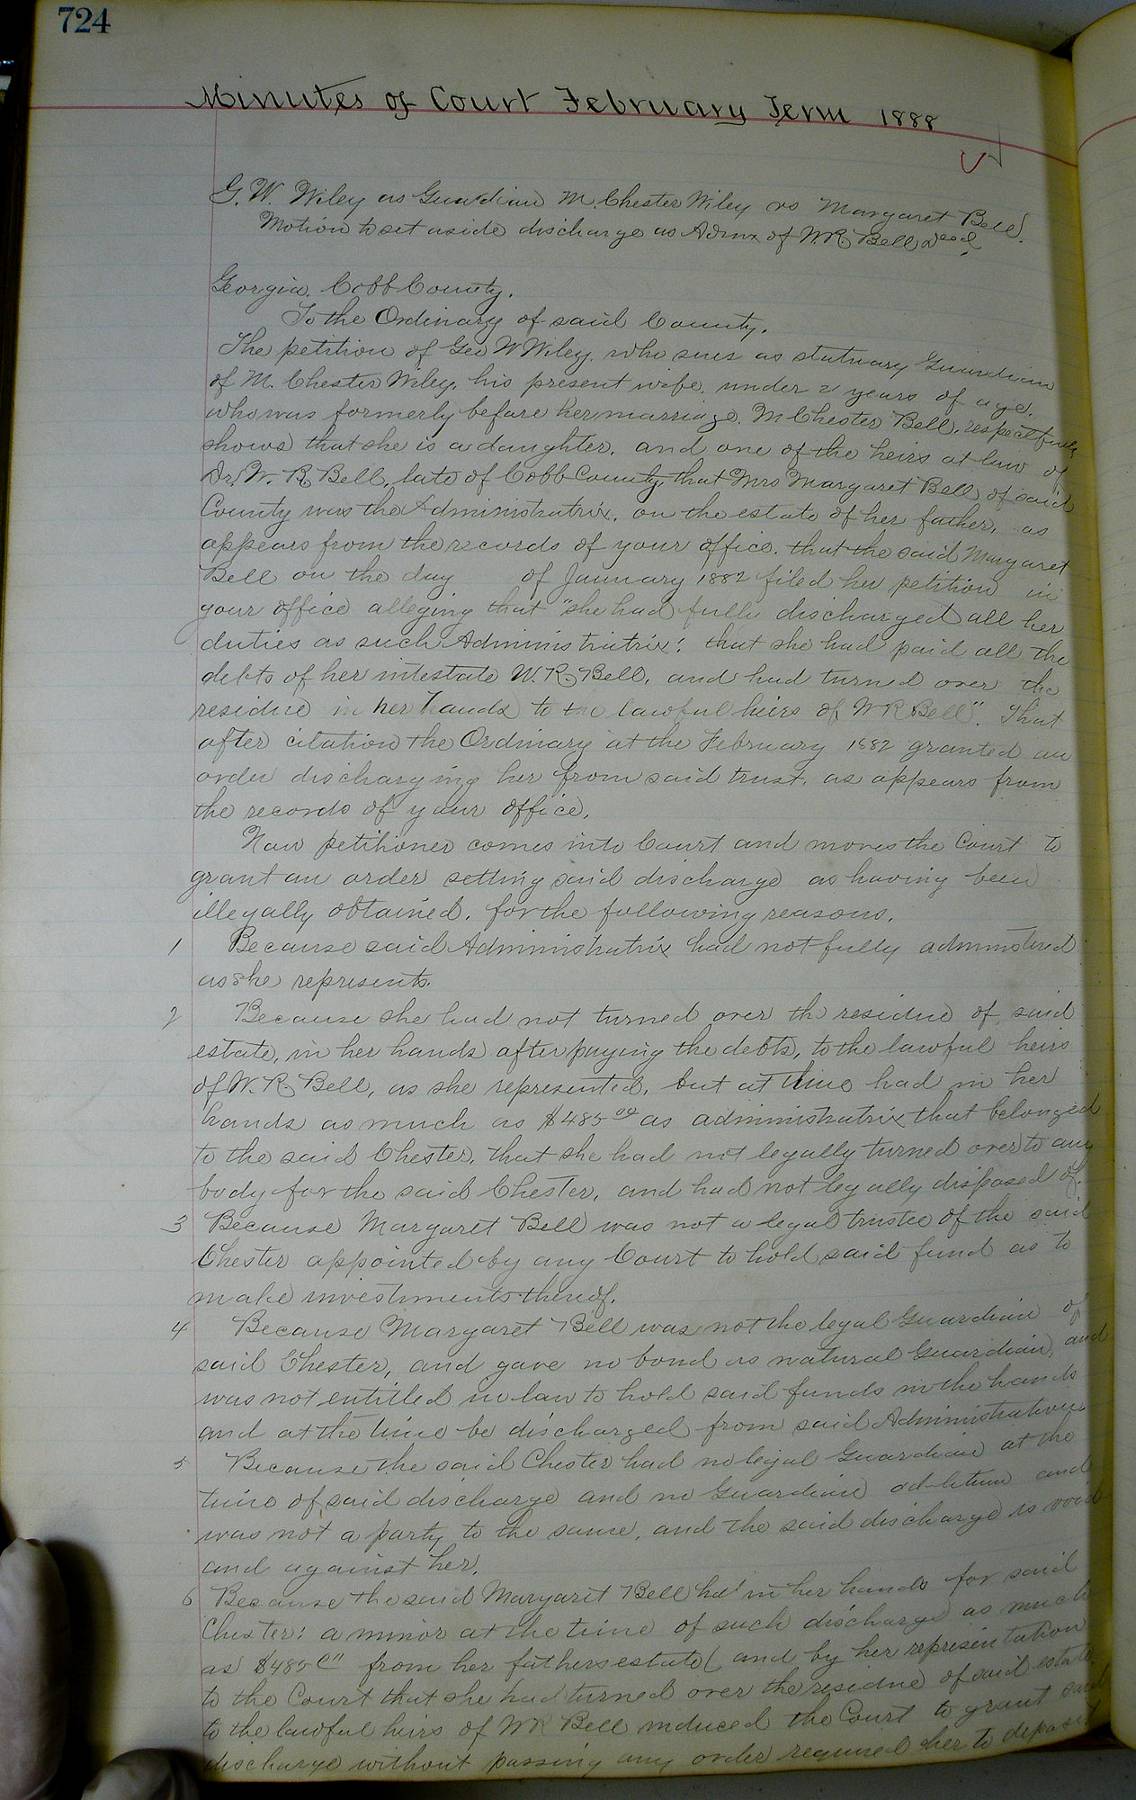 724
Minutes of Court February Term 1888
G. W. Wiley as Guardian M. Chester Wiley vs Margaret Bell.
Motion to set aside discharge as Admx of W. R. Bell Decd.
Georgia. Cobb County.
To the Ordinary of said County.
The petition of Geo W Wiley. who sues as statuary Guardian
of M. Chester Wiley, his present wife, under 21 years of age.
who was formerly before her marriage. M Chester Bell, respectfully
shows that she is a daughter, and one of the heirs at law of
Dr. W. R. Bell, late of Cobb County, that Mrs Margaret Bell of said
County was the Administratrix, on the estate of her father, as
appears from the records of your office. that the said Margaret
Bell on the day of January 1882 filed her petition in
your office alleging that "she had fully discharged all her
duties as such Administratrix: that she had paid all the
debts of her intestate W. R. Bell, and had turned over the
residue in her hands to the lawful heirs of W R Bell". That
after citation the Ordinary at the February 1882 granted an
order discharging her from said trust, as appears from
the records of your office.
Now petitioner comes into Court and moves the Court to
grant an order setting said discharge as having been
illegally obtained, for the following reasons.
1 Because said Administratrix had not fully administered
as she represents.
2 Because she had not turned over the residue of said
estate, in her hands after paying the debts, to the lawful heirs
of W. R. Bell, as she represented, but at time had in her
hands as much as $485 00 as administratrix that belonged
to the said Chester, that she had not legally turned over to any
body for the said Chester, and had not legally disposed of.
3 Because Margaret Bell was not a legal trustee of the said
Chester appointed by any Court to hold said fund as to
make investments thereof.
4 Because Margaret Bell was not the legal Guardian of
said Chester, and gave no bond as natural Guardian, and
was not entitled in law to hold said funds in the hands
and at the time be discharged from said Administration
5 Because the said Chester had no legal Guardian at the
time of said discharge and no Guardian ad-litum and
was not a party to the same, and the said discharge is void
and against her.
6 Because the said Margaret Bell had in her hands for said
Chester: a minor at the time of such discharge as much
as $485 from her fathers estate (and by her representation
to the Court that she had turned over the residue of said estate
to the lawful heirs of W R Bell induced the Court to grant said
discharge without passing any order required her to deposit